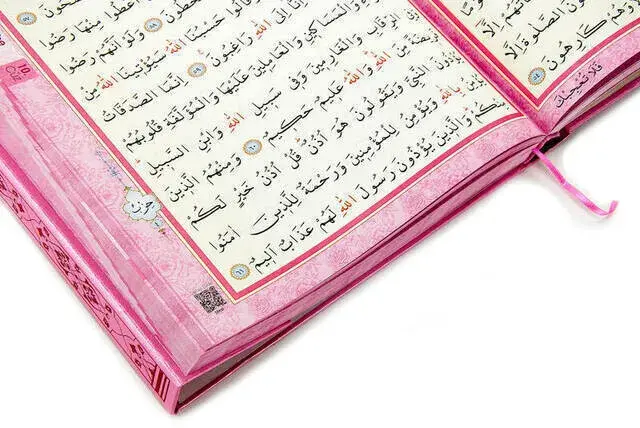 اَعْطُوا مِنْهَا رَضُوا
وَلَوْ اَنَّهُمْ رَضُوا
وَقَالُوا حَسْبُنَا اللّٰهُ سَيُؤْتِينَا اللّٰهُ مِنْ
اللّٰهِ رَاغِبُونَ ٥٩ اِنَّمَا الصَّدَقَاتُ
وَالْمَسَاكِينِ وَالْعَامِلِينَ عَلَيْهَا وَالْمُؤَلَّفَةِ قُلُوبُهُمْ
الرِّقَابِ وَالْغَارِمِينَ وَفِي سَبِيلِ اللّٰهِ وَابْنِ السَّبِيلِ
مِنَ اللّٰهِ وَاللّٰهُ عَلِيمٌ حَكِيمٌ ٦٠ وَمِنْهُمُ الَّذِينَ
يُؤْذُونَ النَّبِيَّ وَيَقُولُونَ هُوَ اُذُنٌ قُلْ اُذُنُ خَيْرٍ لَكُمْ
بِاللّٰهِ وَيُؤْمِنُ لِلْمُؤْمِنِينَ وَرَحْمَةٌ لِلَّذِينَ اٰمَنُوا
وَالَّذِينَ يُؤْذُونَ رَسُولَ اللّٰهِ لَهُمْ عَذَابٌ اَلِيمٌ ٦١
10. Cüz
الصَّلٰوةَ اِلَّا
وَهُمْ كَارِهُونَ ٥٤
فَلَا تُعْجِبْكَ